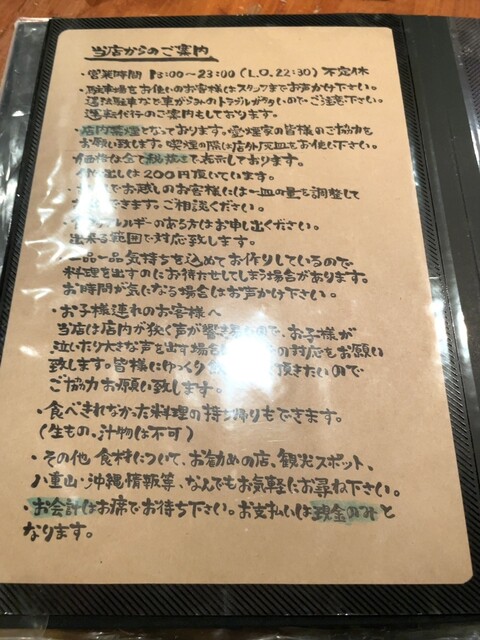 当店からのご案内
・営業時間 18:00～23:00(L.O.22:30)不定休
・駐車場をお使いのお客様はスタッフまでお声かけ下さい。
違法駐車など車がらみのトラブルが多いのでご注意下さい。
運転代行のご案内もしております。
店内禁煙となっております。愛煙家の皆様のご協力を
お願い致します。喫煙の際は店外灰皿をお使い下さい。
価格は全て税抜きで表示しております。
し出しは200円頂いています。
でお越しのお客様には一皿の量を調整して
できます。ご相談ください。
アレルギーのある方はお申し出ください。
出来る範囲で対応致します。
一品一品気持ちを込めてお作りしているので
料理を出すのにお待たせしてしまう場合があります。
お時間が気になる場合はお声かけ下さい。
・お子様連れのお客様へ
当店は店内が狭く声が響き ので、お子様が
泣いたり大きな声を出す場 の対応をお願い
致します。皆様にゆっくり 頂きたいので
ご協力お願い致します。
・食べきれなかった料理の持ち帰りもできます。
(生もの、汁物は不可)
・その他 食材について、お勧めの店、観光スポット、
八重山・沖縄情報等、なんでもお気軽にお尋ね下さい。
・お会計はお席でお待ち下さい。お支払いは現金のみと
なります。